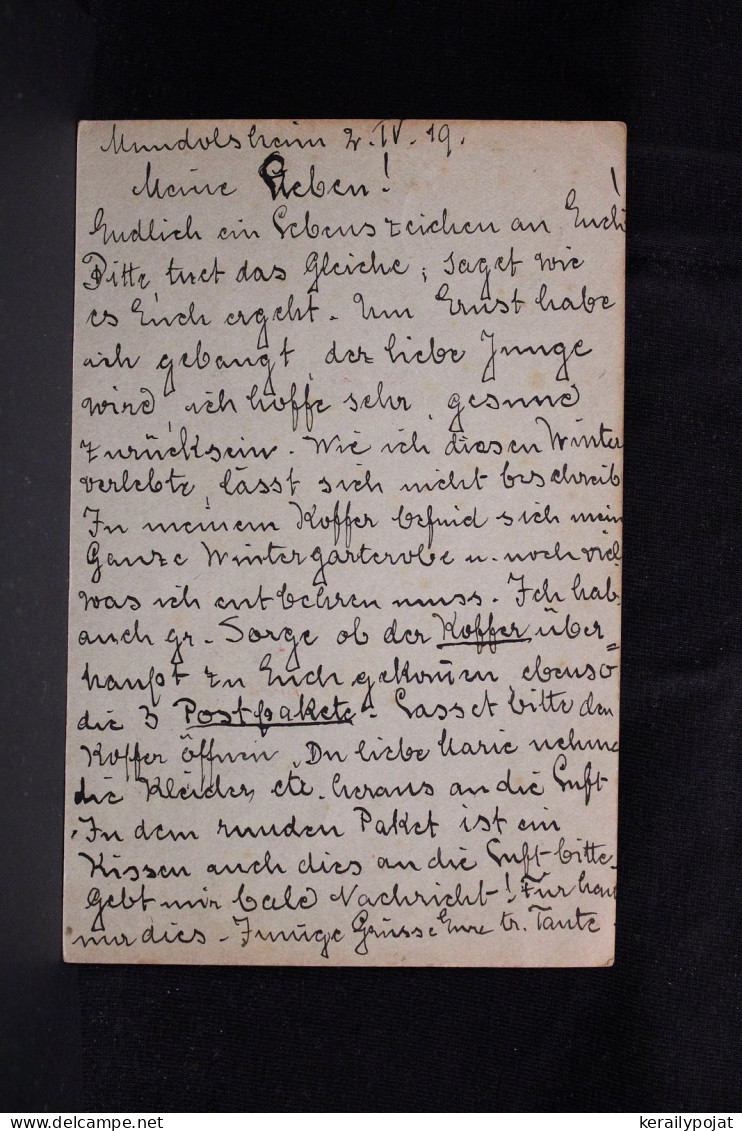 Mundolsheim 2. IV. 19.
Meine Lieben!
Endlich ein Lebenszeichen an Euch!
Bitte tuet das Gleiche, saget wie
es Euch ergeht. Um Ernst habe
ich gebangt, der liebe Junge
wird, ich hoffe sehr, gesund
zurücksein. Wie ich diesen Winter
verlebte, lässt sich nicht beschreib
In meinem Koffer befind sich mein
Ganze Wintergarterobe u. noch viel
was ich entbehren muss. Ich hab
auch gr. Sorge ob der Koffer über=
haupt zu Euch gekom̄en, ebenso
die 3 Postpakete. Lasset bitte den
Koffer öffnen, Du liebe Marie nehme
die Kleider, etc. heraus an die Luft
In dem runden Paket ist ein
Kissen auch dies an die Luft bitte.
Gebt mir bald Nachricht! Für heut
nur dies. Innige Grüsse Eure tr. Tante
kerailypojat